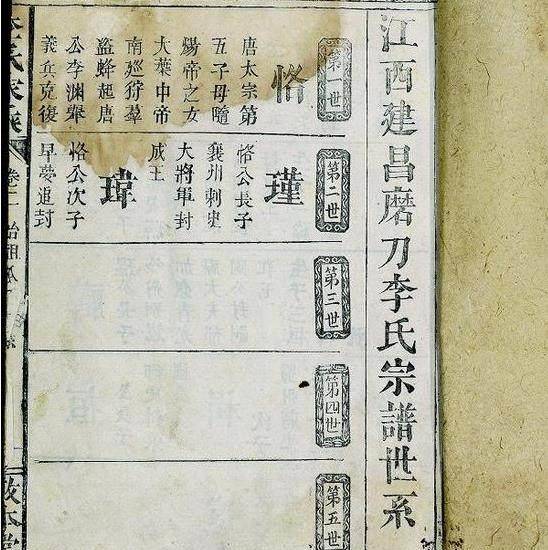 江西建昌磨刀李氏宗譜世系
第一世
恪
唐太宗第
五子母隨
煬帝之女
大葉中帝
南廵狩羣
盜蜂起唐
公李渊舉
義兵克復
第二世
瑾
恪公長子
襄州刺史
大將軍封
成王
瑋
恪公次子
早夢追封
第三世
第四世
第五世
卷二